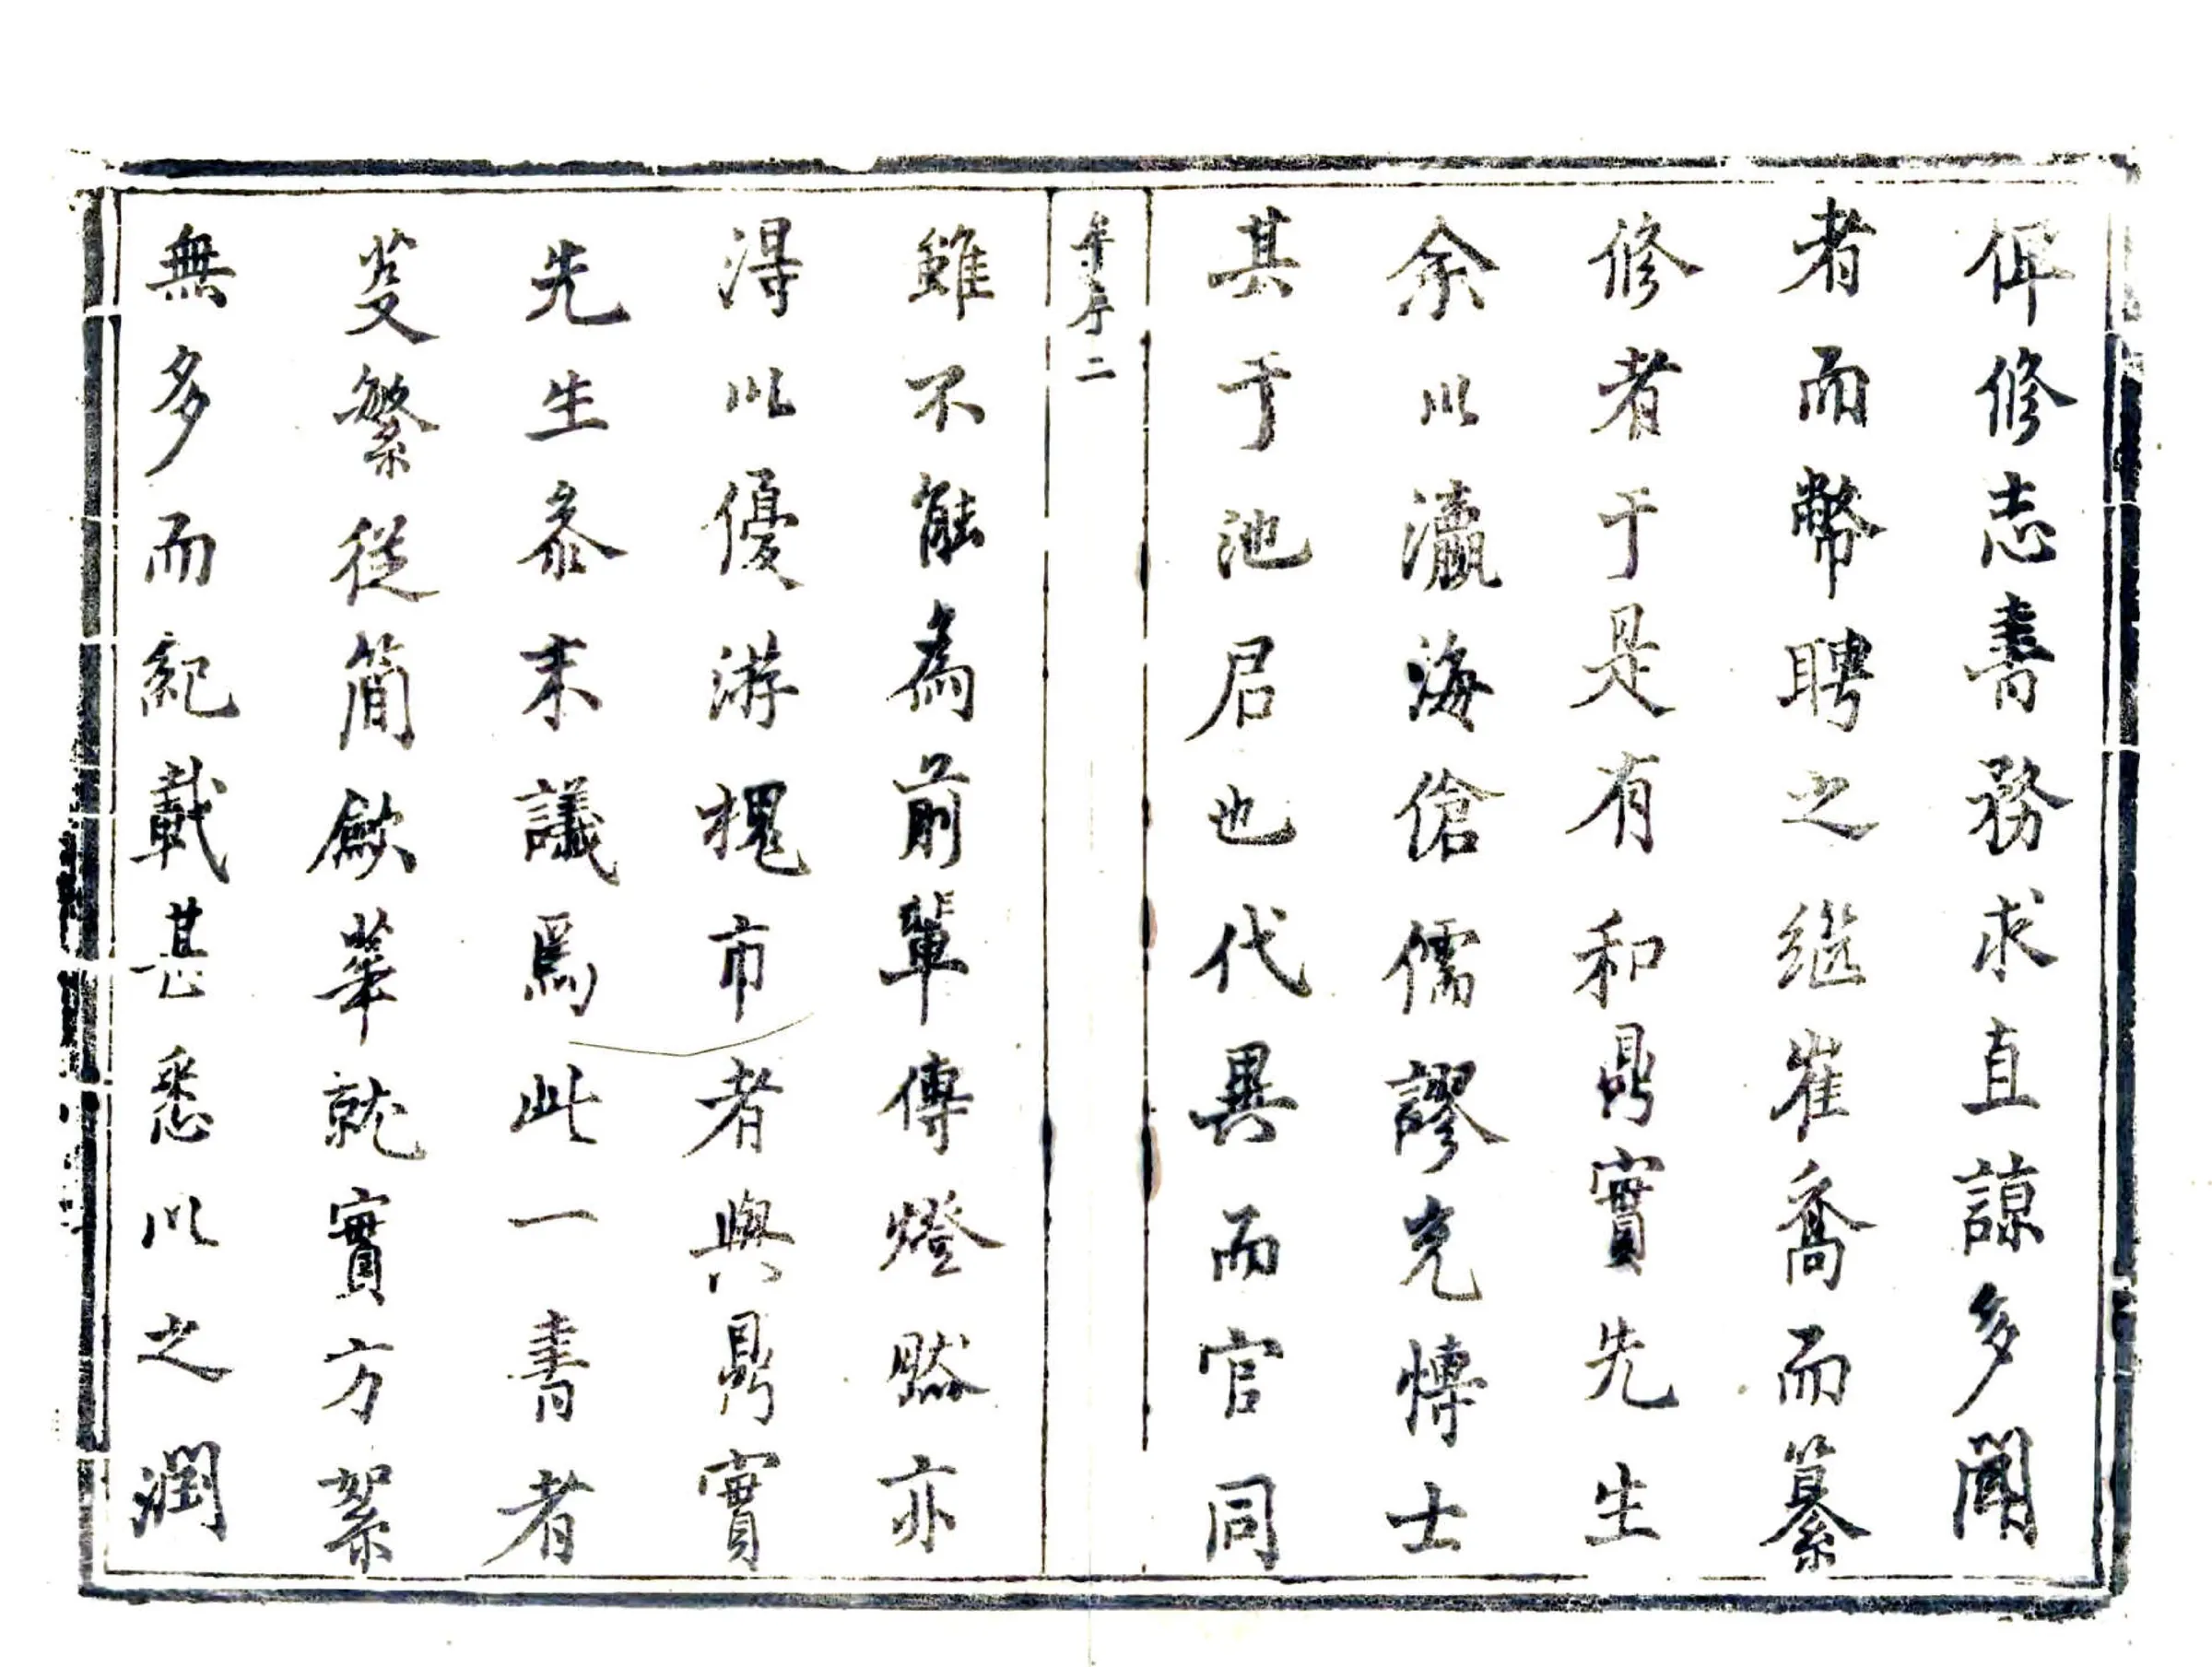 俾修志書務求直諒多聞
者而幣聘之繼崔喬而纂
修者于是有和鼎實先生
余以瀛海傖儒謬充博士
其于池君也代異而官同
序二
雖不能為前輩傳燈然亦
得以優游槐市者與鼎實
先生參末議焉此一書者
芟繁從簡歛華就實方絜
無多而紀載甚悉以之潤